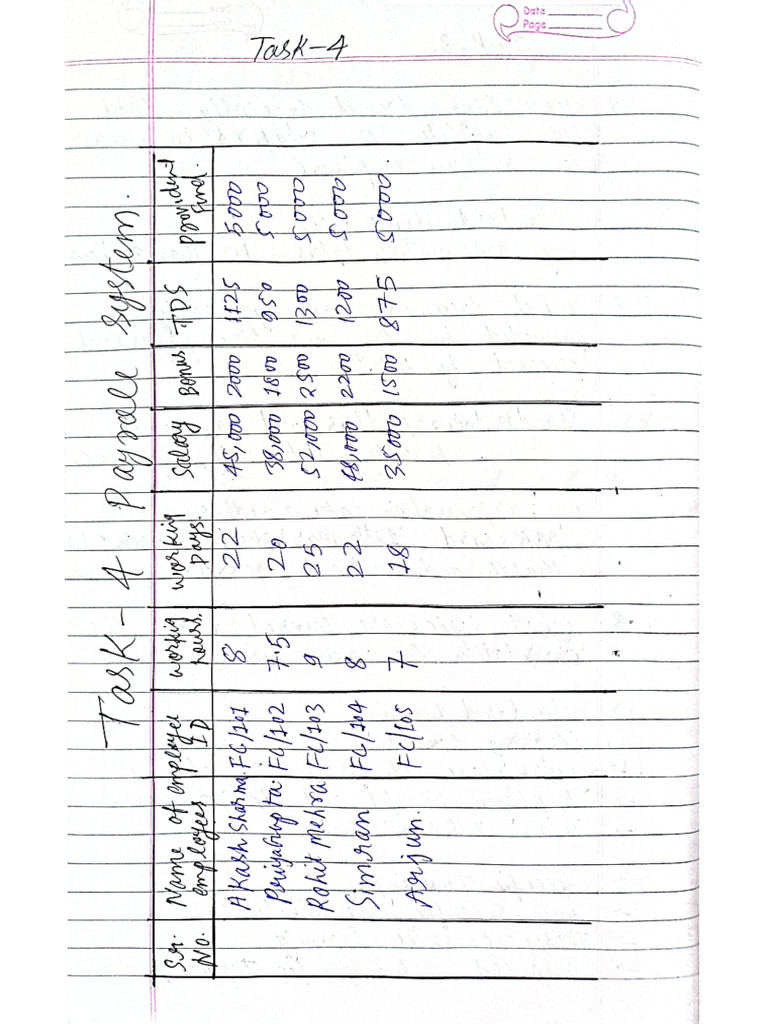 Date
Page
Task-4
Task-4 Payrole system.
Sr. No. Name of employees employee ID working hours. working Days. Salary Bonus TDS Provident Fund.
Akash Sharma. FC/101 8 22 45,000 2000 1125 5000
Priya Gupta. FC/102 7.5 20 38,000 1800 950 5000
Rohit Mehra FC/103 9 25 52,000 2500 1300 5000
Simran FC/104 8 22 48,000 2200 1200 5000
Arijun. FC/105 7 18 35000 1500 875 5000.